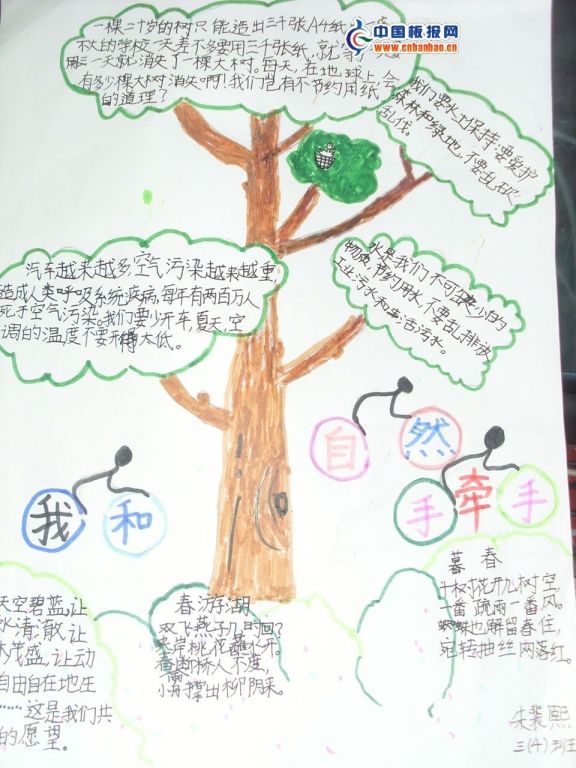 中国板报网
www.cnbanbao.cn
一棵二十岁的树只能造出三千张A4纸
不大的学校一天差不多要用三千张纸,就等
一天就消失了一棵大树。每天,在地球上会
有多少棵大树消失啊!我们岂有不节约用纸
的道理?
我们要水土保持,要爱护
森林和绿地,不要乱砍
乱伐。
汽车越来越多,空气污染越来越重,
造成人类呼吸系统疾病,每年有两百万人
死于空气污染。我们要少开车,夏天,空
调的温度不要开得太低。
水是我们不可缺少的
物质,节约用水,不要乱排放
工业污水和生活污水。
自然
手牵手
我和
天空碧蓝,让
水清澈,让
木茂盛,让动
自由自在地生
……这是我们共
的愿望。
春游湖
双飞燕子几时回?
夹岸桃花蘸水开
春雨断桥人不度,
小舟撑出柳阴来。
暮春
千树花开几树空,
一番疏雨一番风。
蜘蛛也解留春住,
宛转抽丝网落红。
朱裴熙
三(4)班